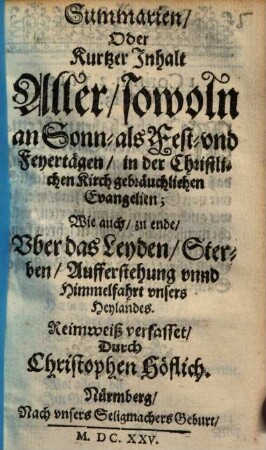 Summarien/
Oder
Kurtzer Inhalt
Aller/sowoln
an Sonn-als Fest-vnd
Feyertägen/in der Christli-
chen Kirch gebräuchlichen
Evangelien;
Wie auch/zu ende/
Vber das Leyden/Ster-
ben/Aufferstehung vnnd
Himmelfahrt vnsers
Heylandes.
Reimweiß verfasset/
Durch
Christophen Höflich.
Nürmberg/
Nach vnsers Seligmachers Geburt/
M. DC. XXV.